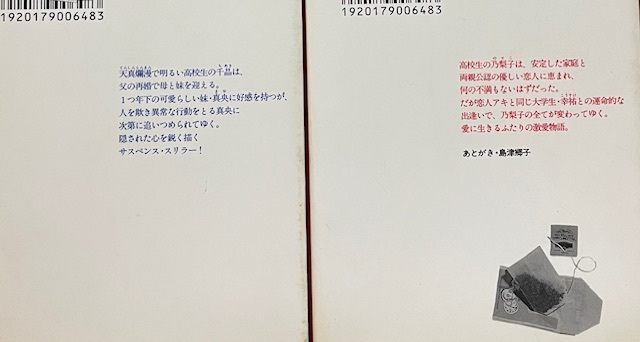 1920179006483
天真爛漫で明るい高校生の千晶は、
父の再婚で母と妹を迎える。
1つ年下の可愛らしい妹・真央に好感を持つが、
人を欺き異常な行動をとる真央に
次第に追いつめられてゆく。
隠された心を鋭く描く
サスペンス・スリラー!
1920179006483
高校生の乃梨子は、安定した家庭と
両親公認の優しい恋人に恵まれ、
何の不満もないはずだった。
だが恋人アキと同じ大学生・幸祐との運命的な
出逢いで、乃梨子の全てが変わってゆく。
愛に生きるふたりの激愛物語。
あとがき・島津郷子